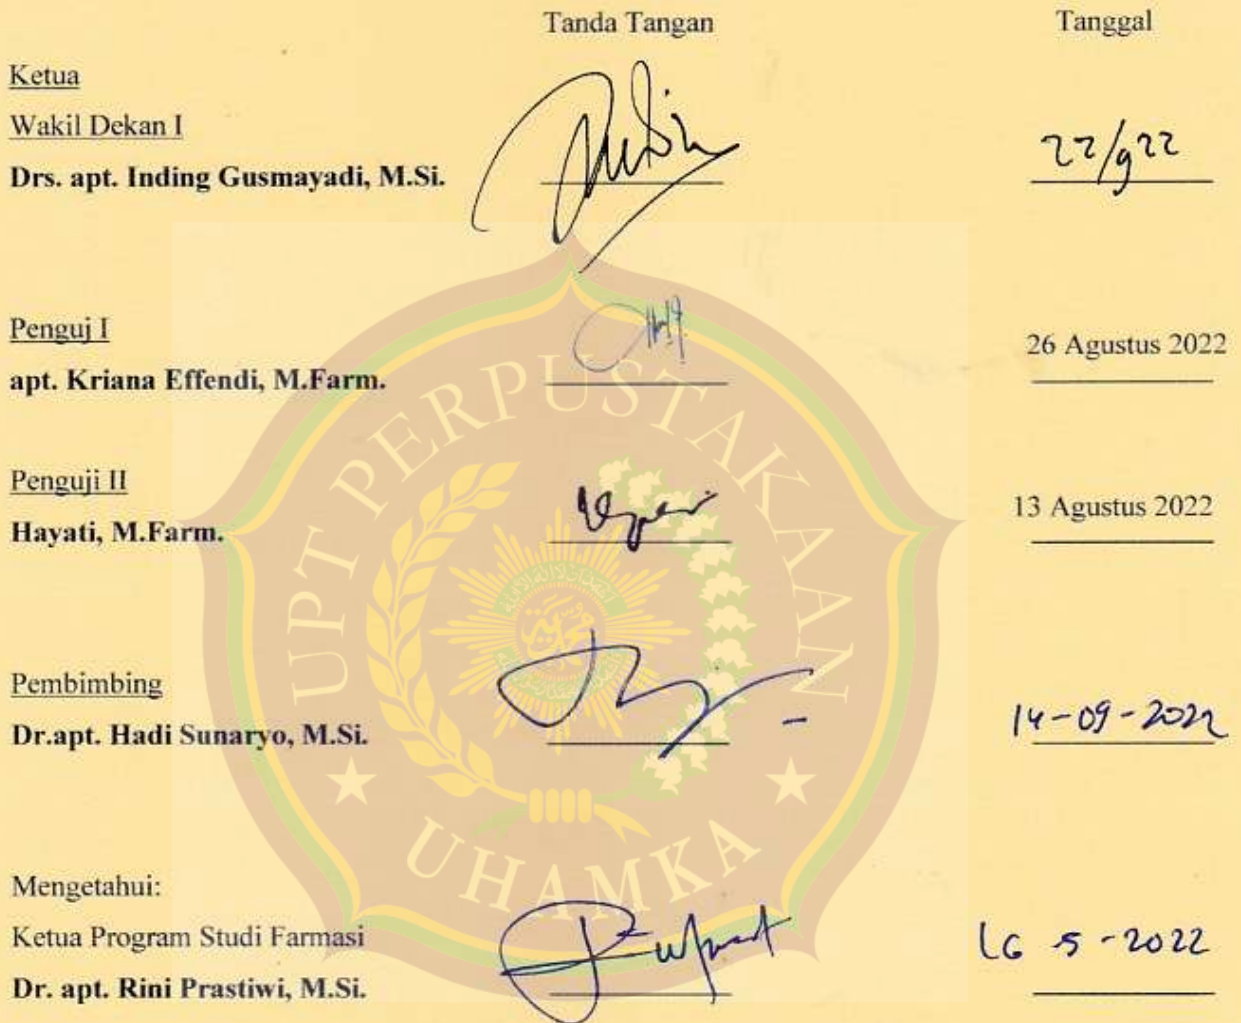 Tanda Tangan Tanggal
Ketua
Wakil Dekan I
Drs. apt. Inding Gusmayadi, M.Si. 22/9 22
Penguj I
apt. Kriana Effendi, M.Farm. 26 Agustus 2022
Penguji II
Hayati, M.Farm. 13 Agustus 2022
Pembimbing
Dr.apt. Hadi Sunaryo, M.Si. 14-09-2022
Mengetahui:
Ketua Program Studi Farmasi
Dr. apt. Rini Prastiwi, M.Si. 5-2022
UPT PERPUSTAKAAN
UHAMKA